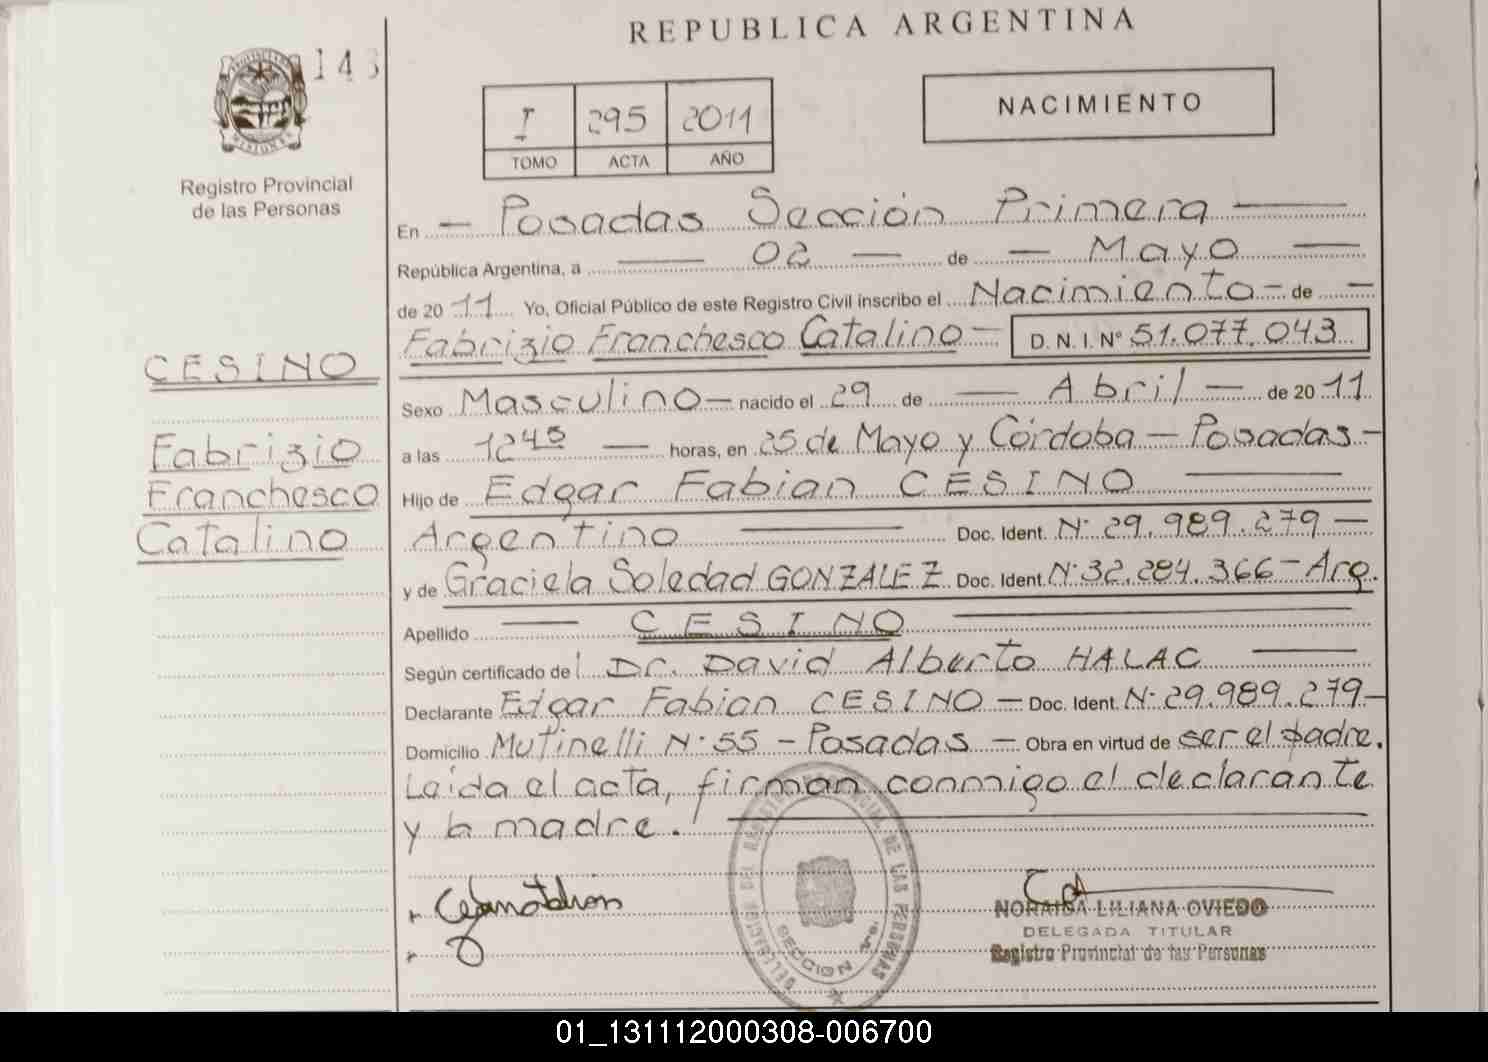 REPUBLICA ARGENTINA
143
I 295 2011
TOMO ACTA AÑO
NACIMIENTO
MISIONES
Registro Provincial
de las Personas
En — Posadas Sección Primera —
República Argentina, a — 02 — de — Mayo —
de 2011 Yo, Oficial Público de este Registro Civil inscribo el Nacimiento - de —
Fabrizio Franchesco Catalino — D. N. I. Nº 51.077.043
CESINO
Fabrizio
Franchesco
Catalino
Sexo Masculino — nacido el 29 de — Abril — de 2011
a las 12 45 — horas, en 25 de Mayo y Córdoba — Posadas -
Hijo de Edgar Fabian CESINO —
Argentino — Doc. Ident. Nº 29.989.279 —
y de Graciela Soledad GONZALEZ Doc. Ident. Nº 32.284.366 - Arg.
Apellido — CESINO —
Según certificado del Dr. David Alberto HALAC —
Declarante Edgar Fabian CESINO — Doc. Ident. Nº 29.989.279 -
Domicilio Mutinelli Nº 55 - Posadas — Obra en virtud de ser el padre.
Leída el acta, firman conmigo el declarante
y la madre. —
DELEGACION DEL REGISTRO PROVINCIAL DE LAS PERSONAS
SECCION 1ra.
NORAIDA LILIANA OVIEDO
DELEGADA TITULAR
Registro Provincial de las Personas
01_131112000308-006700